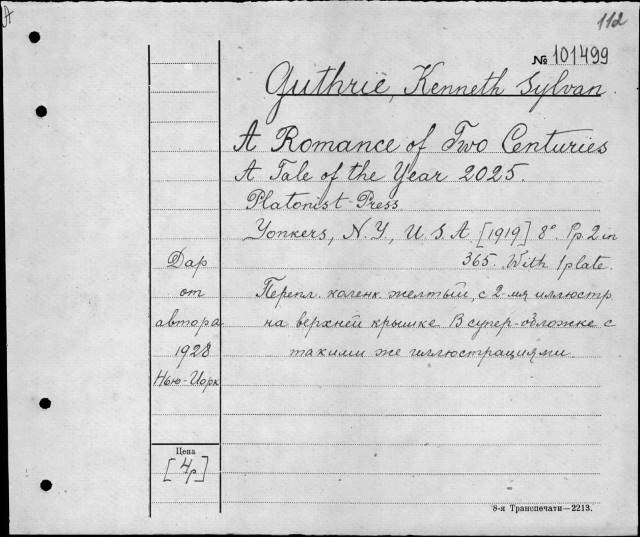 A
112
№ 101499
Guthrie, Kenneth Sylvan.
A Romance of Two Centuries
A Tale of the Year 2025.
Platonist Press
Yonkers, N.Y., U.S.A. [1919] 8°. Pp. 2 in
365. With 1 plate.
Дар
от
автора
1928
Нью-Иорк
Перепл. коленк. желтый, с 2-мя иллюстр.
на верхней крышке. В супер-обложке с
такими же иллюстрациями.
Цена
[4р]
8-я Транспечати—2213.